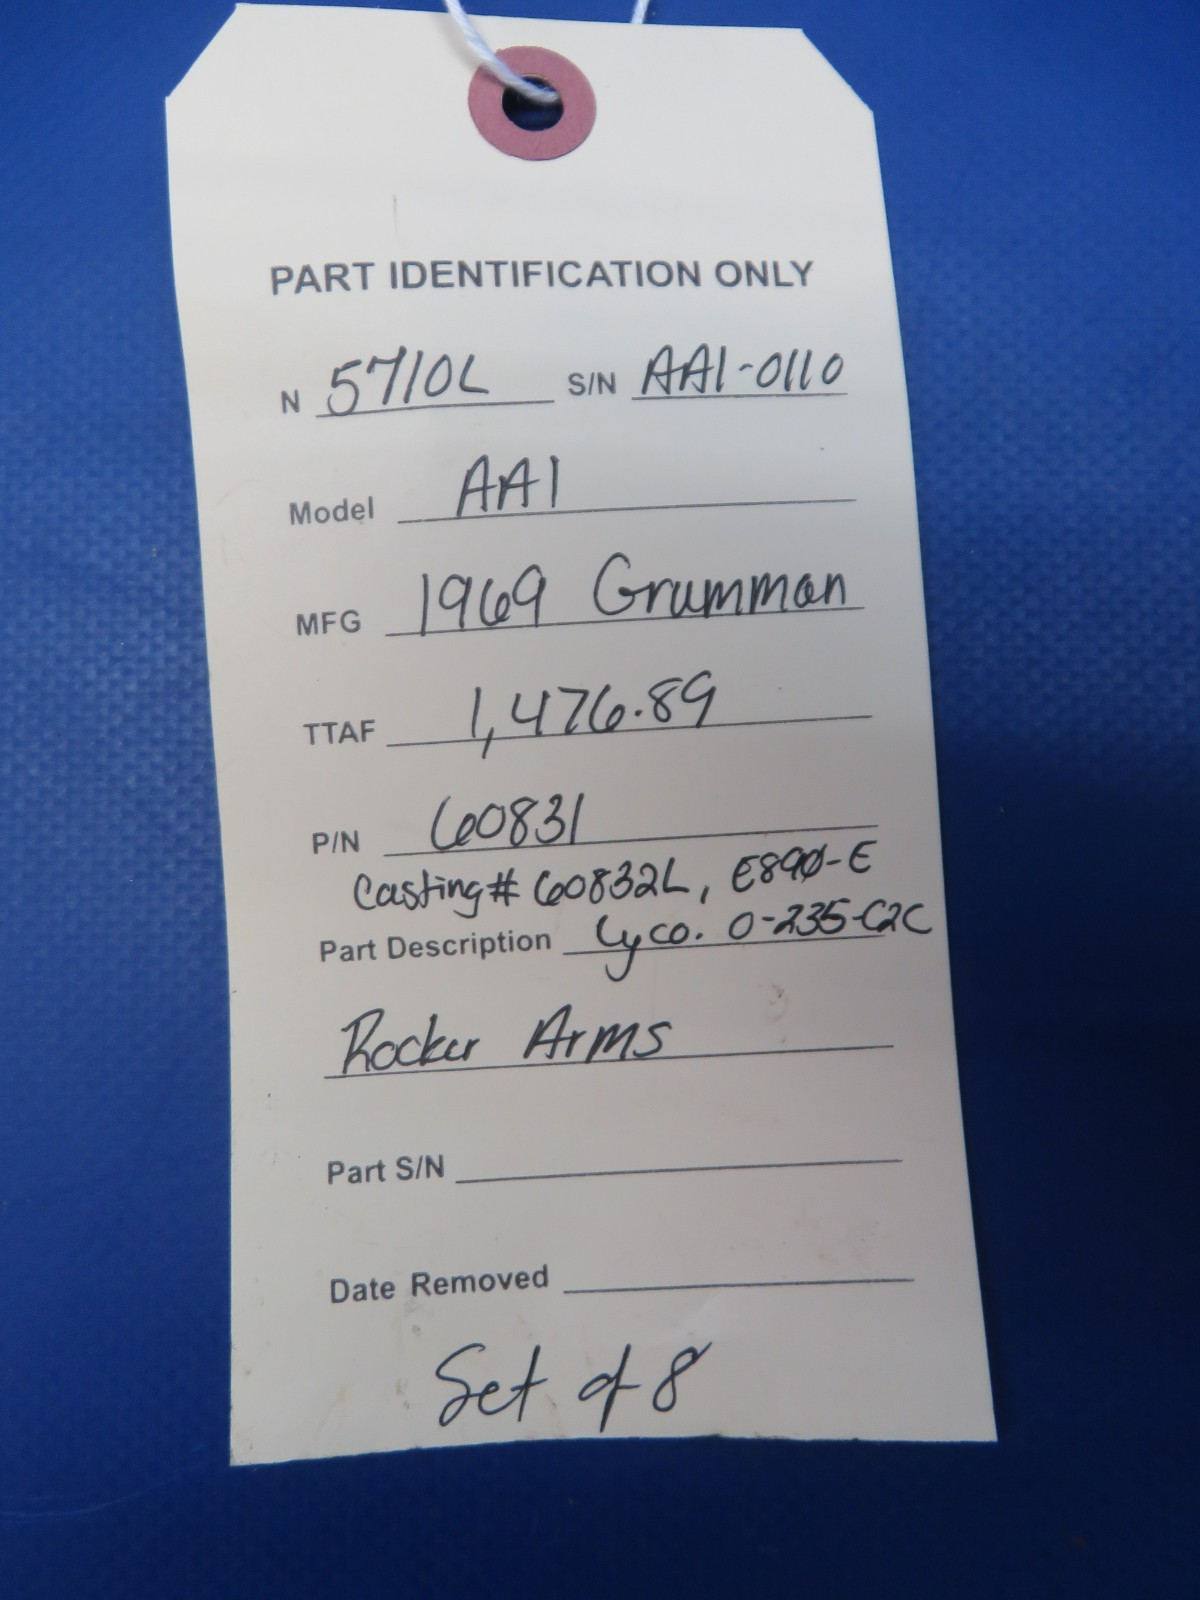 PART IDENTIFICATION ONLY
N 5710L S/N AA1-0110
Model AA1
MFG 1969 Grumman
TTAF 1,476.89
P/N 60831
Casting# 60832L, E890-E
Part Description Lyco. O-235-C2C
Rocker Arms
Part S/N
Date Removed
Set of 8